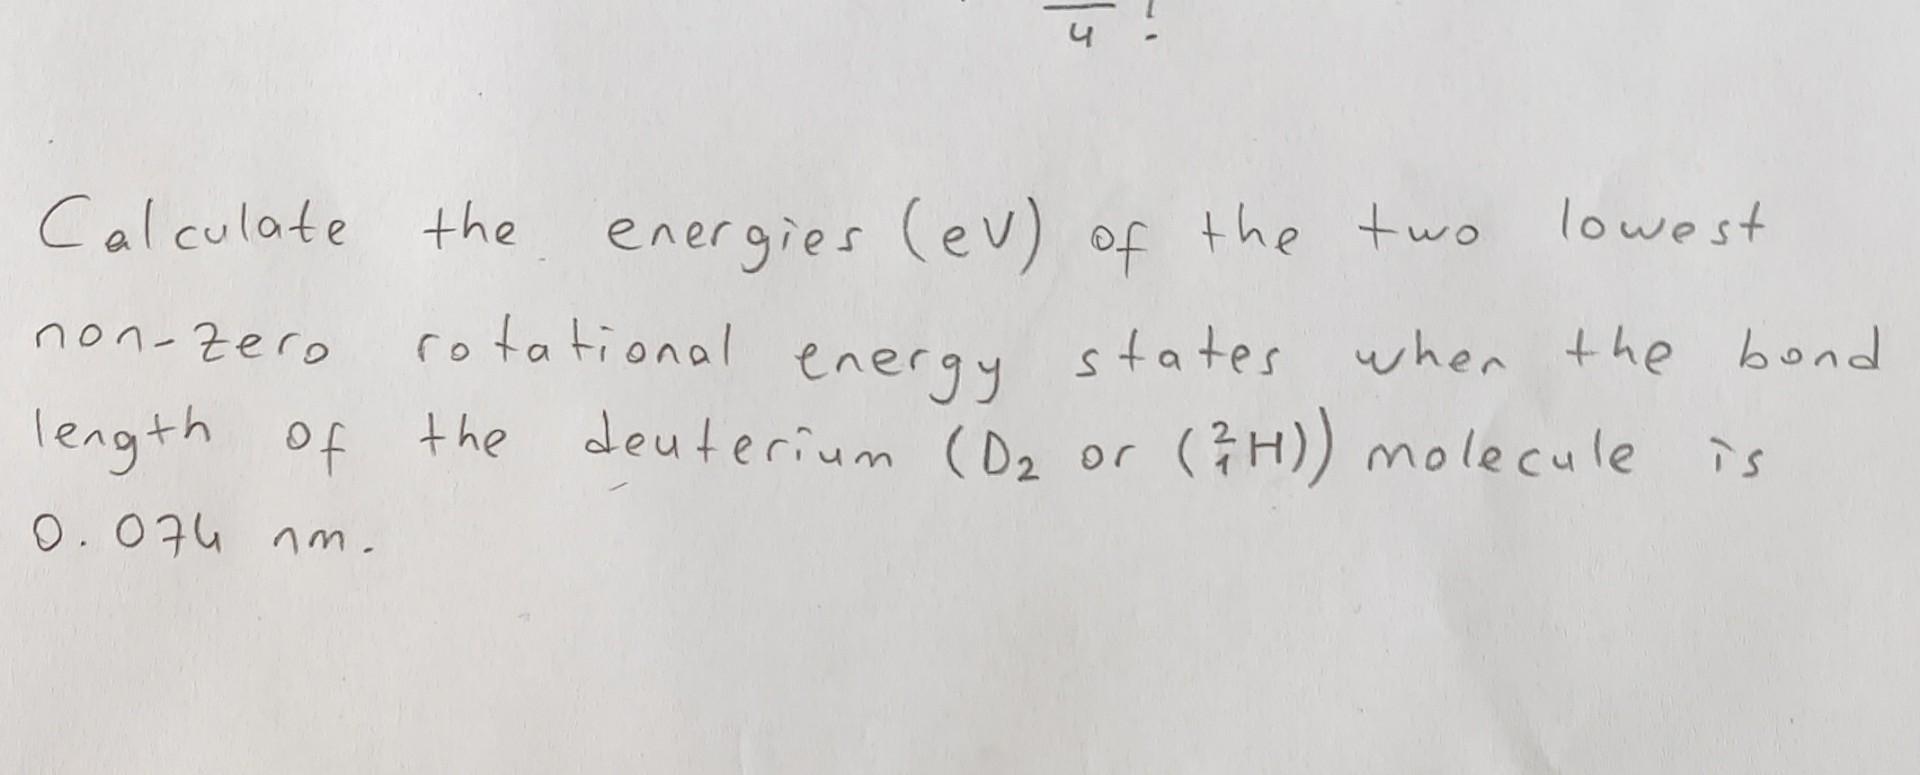 4 !
Calculate the energies (eV) of the two lowest
non-zero rotational energy states when the bond
length of the deuterium (D₂ or (²₁H)) molecule is
0.074 nm.